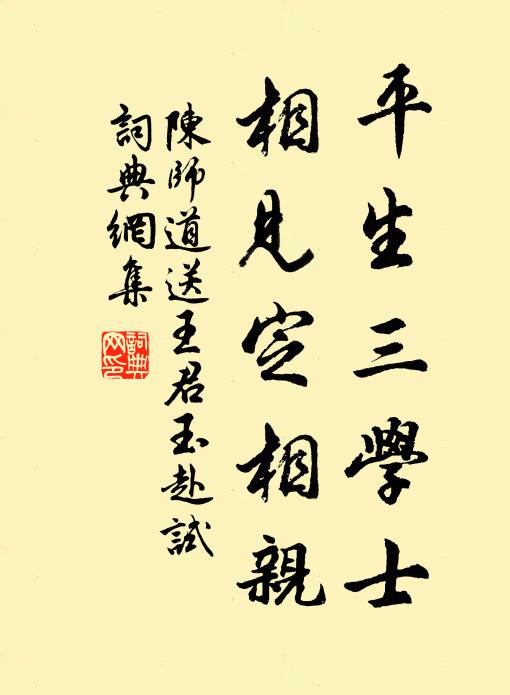 平生三學士
相見定相親
陳師道送王君玉赴試
詞典網集
詞典
网印